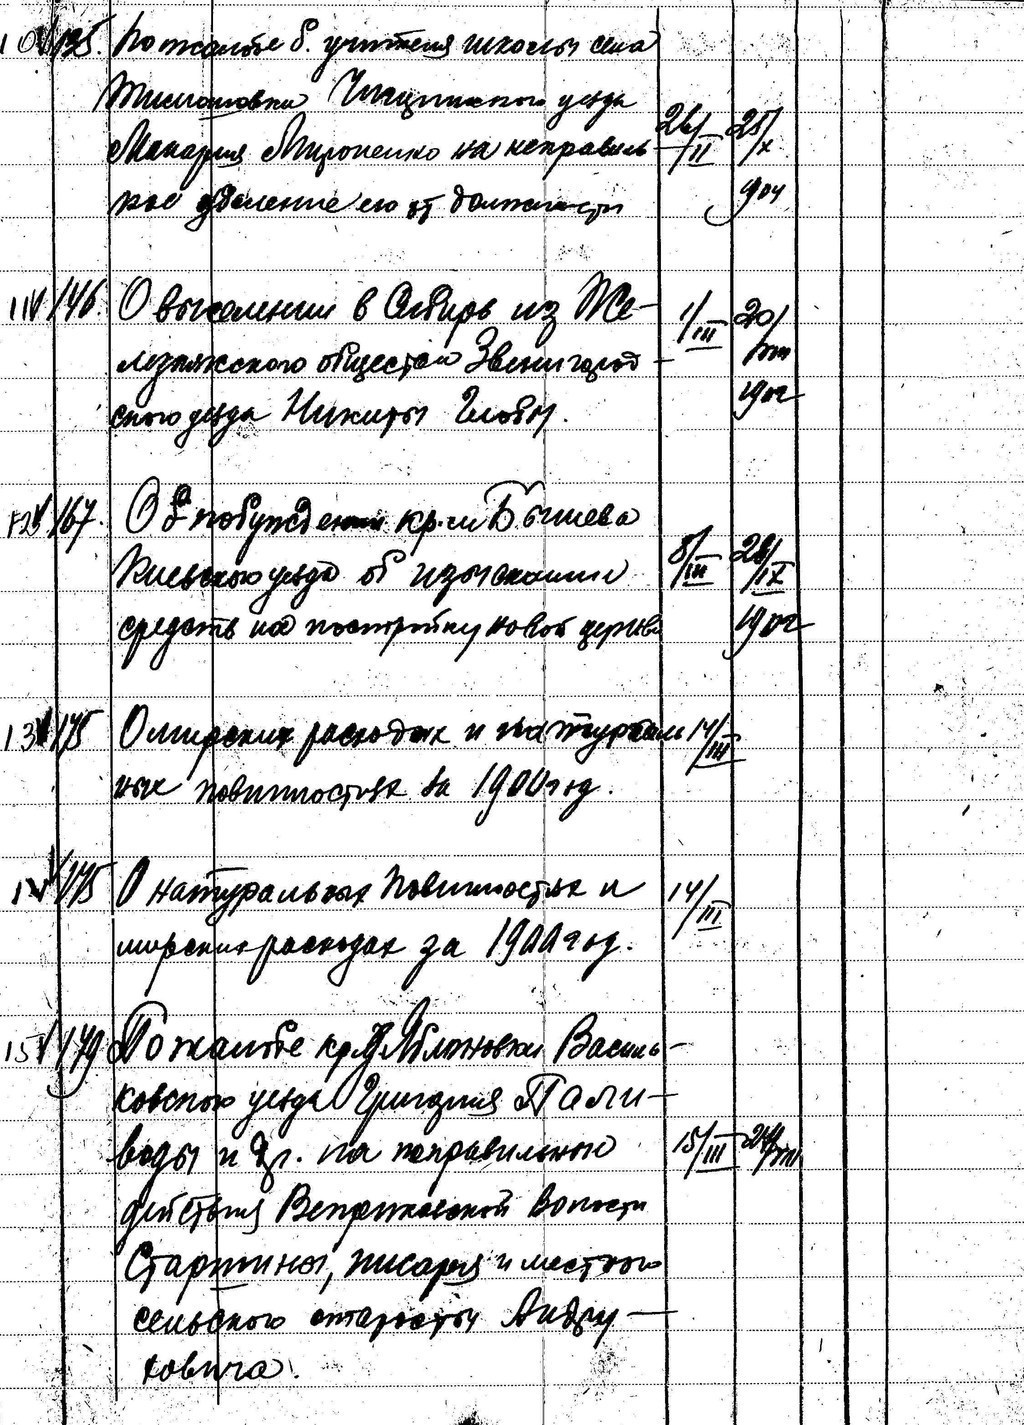 10 135. По жалобе б. учителя школы села
Тимошовки Чигиринского уезда
Макария Мироненко на неправиль-
ное удаление его от должности
26/II 25/X 904
11 146. О выселении в Сибирь из Же-
лезнякского общества Звенигород-
ского уезда Никиты Головы.
1/III 20/VIII 1902
12 167. О побуждении кр. м. Бышева
Киевского уезда об изыскании
средств на постройку новой церкви
8/III 28/IX 1902
13 175 О мирских расходах и натураль
ных повинностях за 1900 год.
14/III
175 О натуральных повинностях и
мирских расходах за 1900 год.
14/III
15 179 По жалобе кр. Яблоновки Василь-
ковского уезда Григория Пали-
воды и др. на неправильные
действия Веприкской волости
Старшины, писаря и местного
сельского старосты Андру-
ховича.
15/III 24/VIII